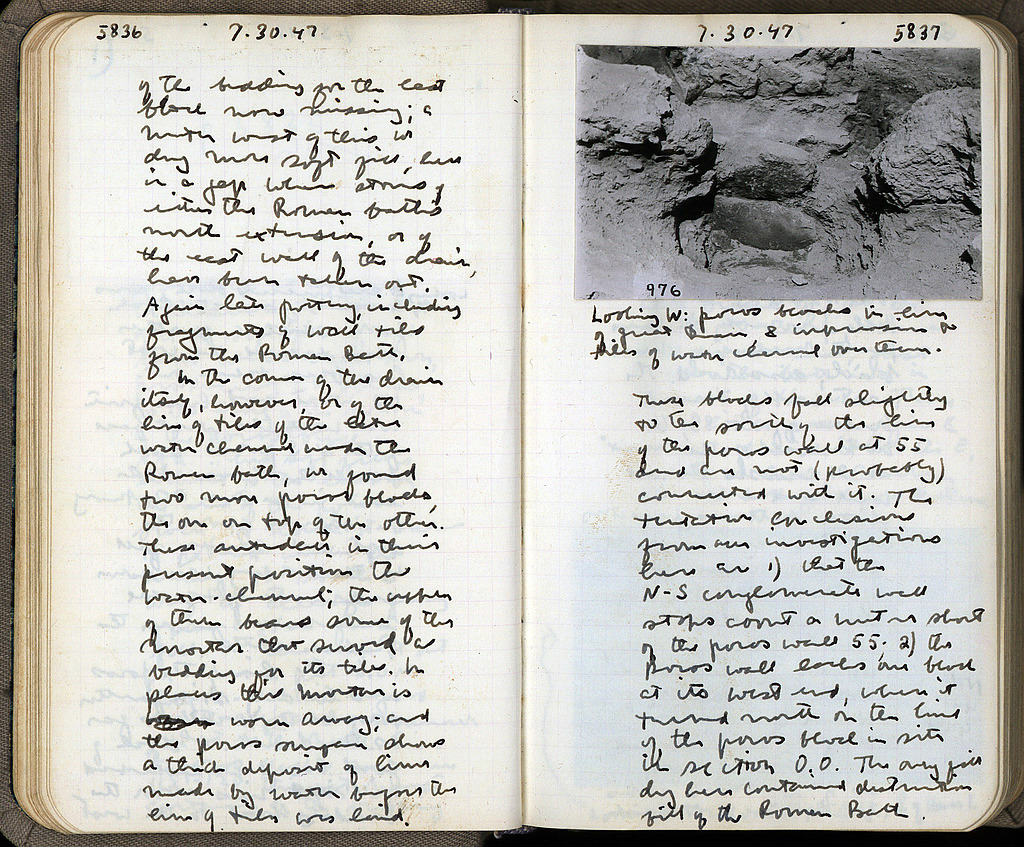 5836 7.30.47
of the bedding for the east
block now missing; a
meter west of this we
dug more soft fill, here
in a gap where stones of
either the Roman bath's
north extension, or of
the east wall of the drain,
have been taken out.
Again late pottery, including
fragments of wall tiles
from the Roman Bath.
In the course of the drain
itself, however, or of the
line of tiles of the later
water channel under the
Roman bath, we found
two more poros blocks,
the one on top of the other.
These antedate in their
present position the
water-channel; the upper
of them bears some of the
mortar that served as
bedding for its tiles. In
places this mortar is
worn away; and
the poros surface shows
a thick deposit of lime
made by water before the
line of tiles was laid.
7.30.47 5837
976
Looking W: poros blocks in line
of great Drain & impression of
tiles of water channel over them.
These blocks fall slightly
to the south of the line
of the poros wall at 55
and are not (probably)
connected with it. The
tentative conclusions
from our investigations
here are 1) that the
N-S conglomerate wall
stops about a meter short
of the poros wall 55; 2) the
poros wall lacks one block
at its west end, where it
turned north on the line
of the poros block in situ
in section O.O. The only fill
dug here contained destruction
fill of the Roman Bath.